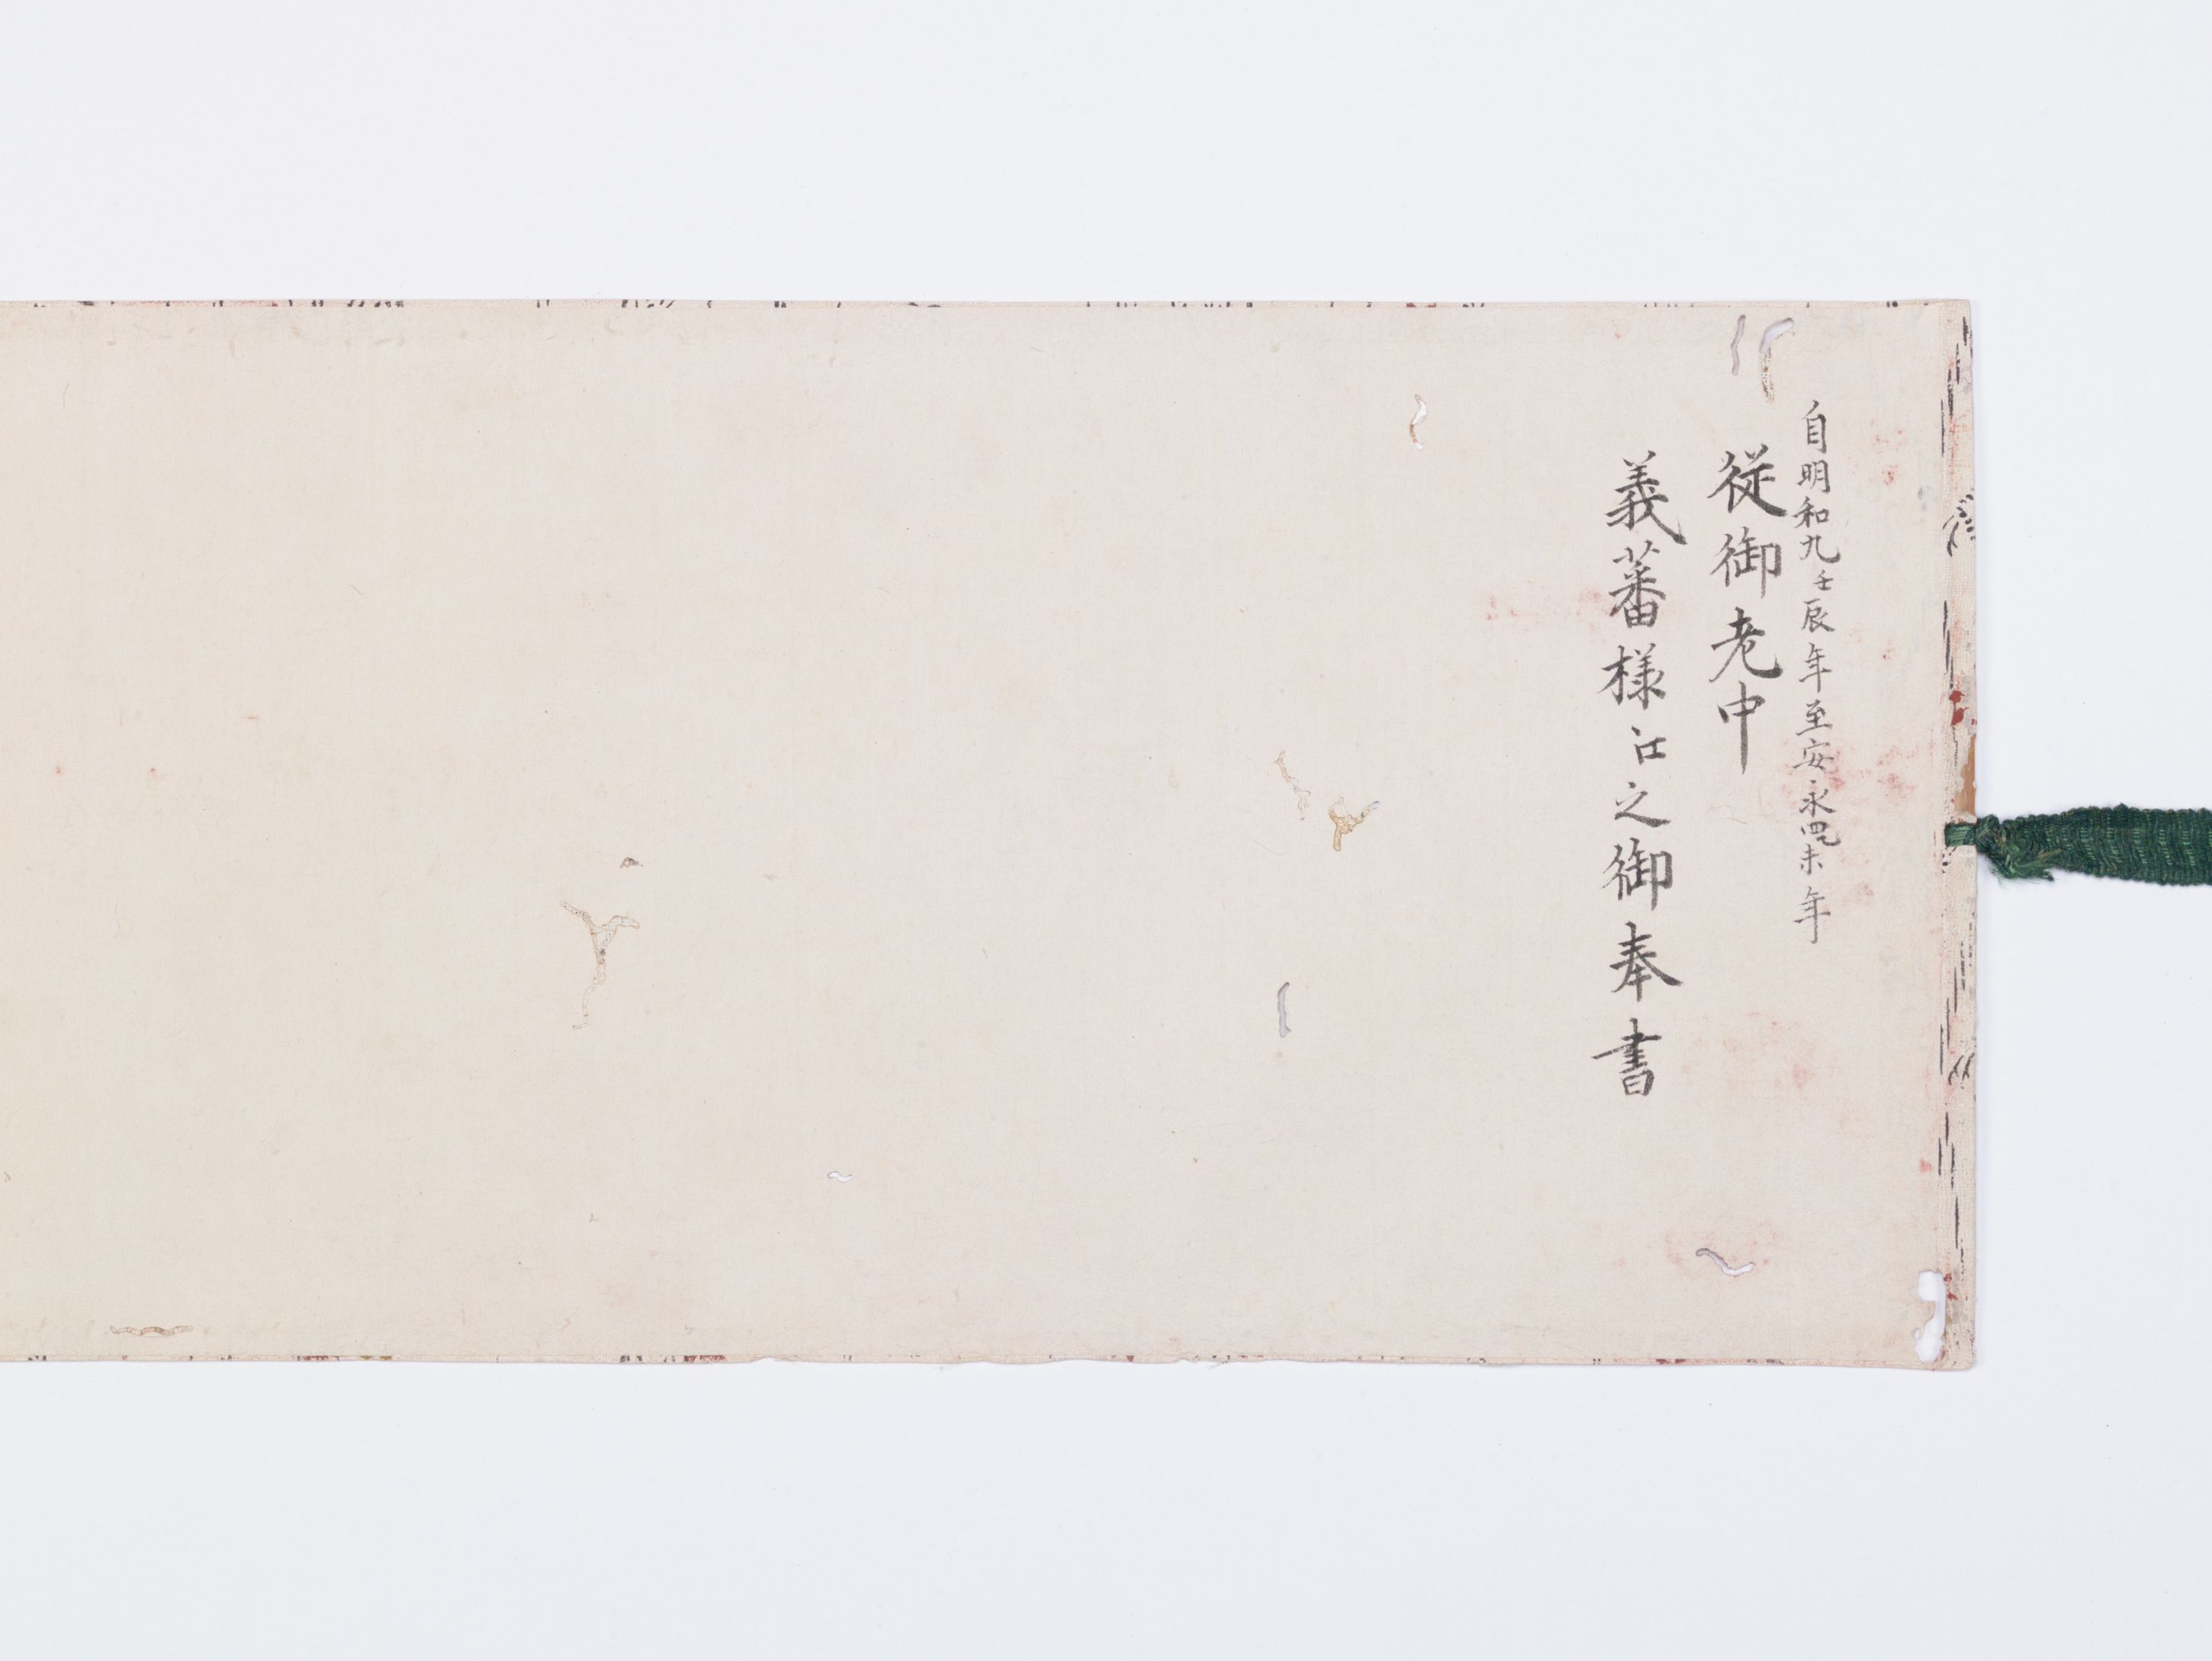 自明和九壬辰年至安永四乙未年
従御老中
義蕃様江之御奉書